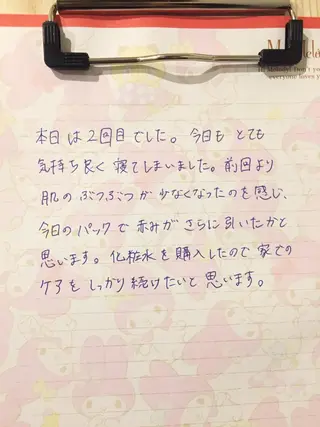 本日は2回目でした。今日も とても
気持ち良く 寝てしまいました。前回より
肌のぶつぶつが 少なくなったのを感じ、
今日のパックで 赤みが さらに引いたかと
思います。化粧水を購入したので 家での
ケアを しっかり続けたいと 思います。